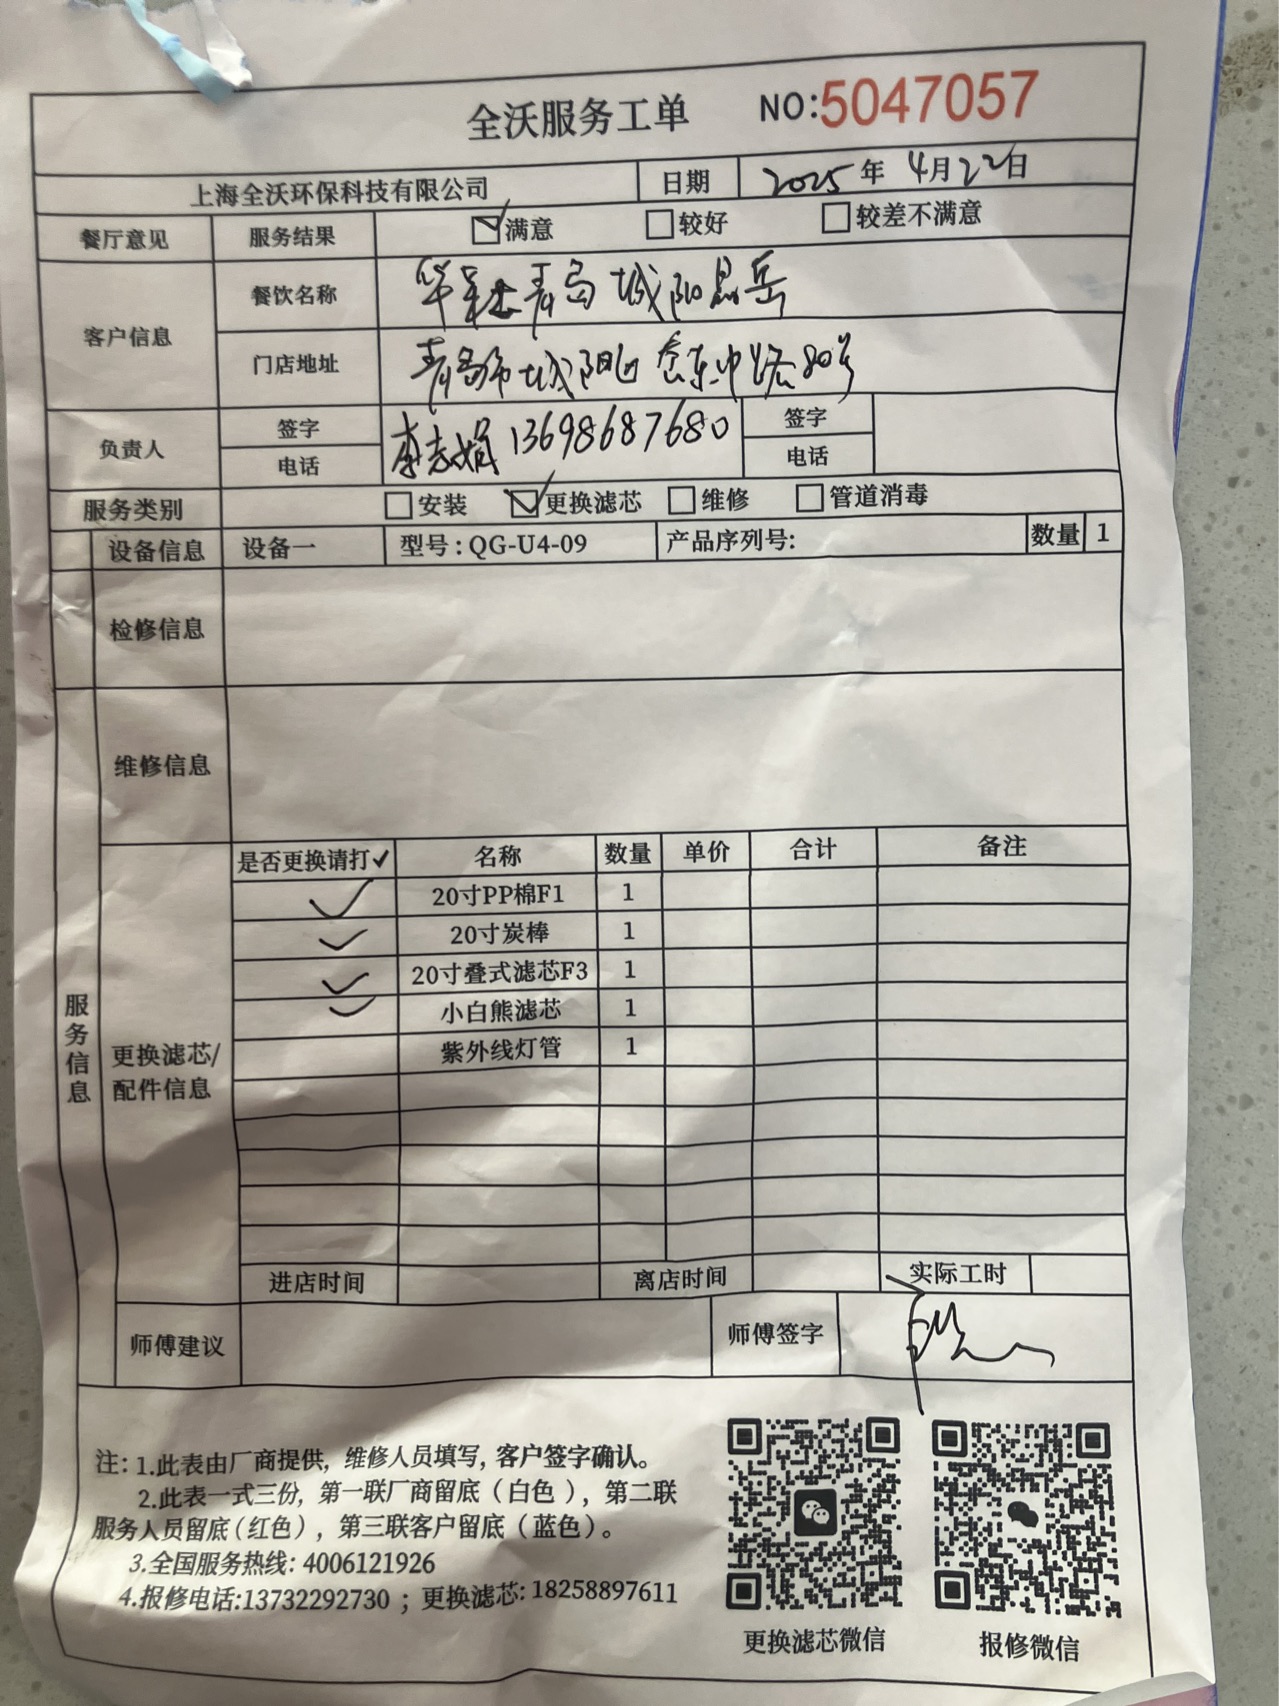 全沃服务工单 NO:5047057
上海全沃环保科技有限公司 日期 2025年4月22日
餐厅意见 服务结果 满意 较好 较差不满意
客户信息 餐饮名称 青岛城阳
门店地址 青岛市城阳区 80号
负责人 签字 电话 李志娟 13698687680 签字 电话
服务类别 安装 更换滤芯 维修 管道消毒
设备信息 设备一 型号:QG-U4-09 产品序列号: 数量 1
检修信息
维修信息
服务信息
更换滤芯/配件信息
是否更换请打✓ 名称 数量 单价 合计 备注
✓ 20寸PP棉F1 1
✓ 20寸炭棒 1
✓ 20寸叠式滤芯F3 1
✓ 小白熊滤芯 1
紫外线灯管 1
进店时间 离店时间 实际工时
师傅建议 师傅签字
注: 1.此表由厂商提供, 维修人员填写, 客户签字确认。
2.此表一式三份, 第一联厂商留底（白色）, 第二联
服务人员留底（红色）, 第三联客户留底（蓝色）。
3.全国服务热线: 4006121926
4.报修电话:13732292730 ; 更换滤芯: 18258897611
更换滤芯微信 报修微信